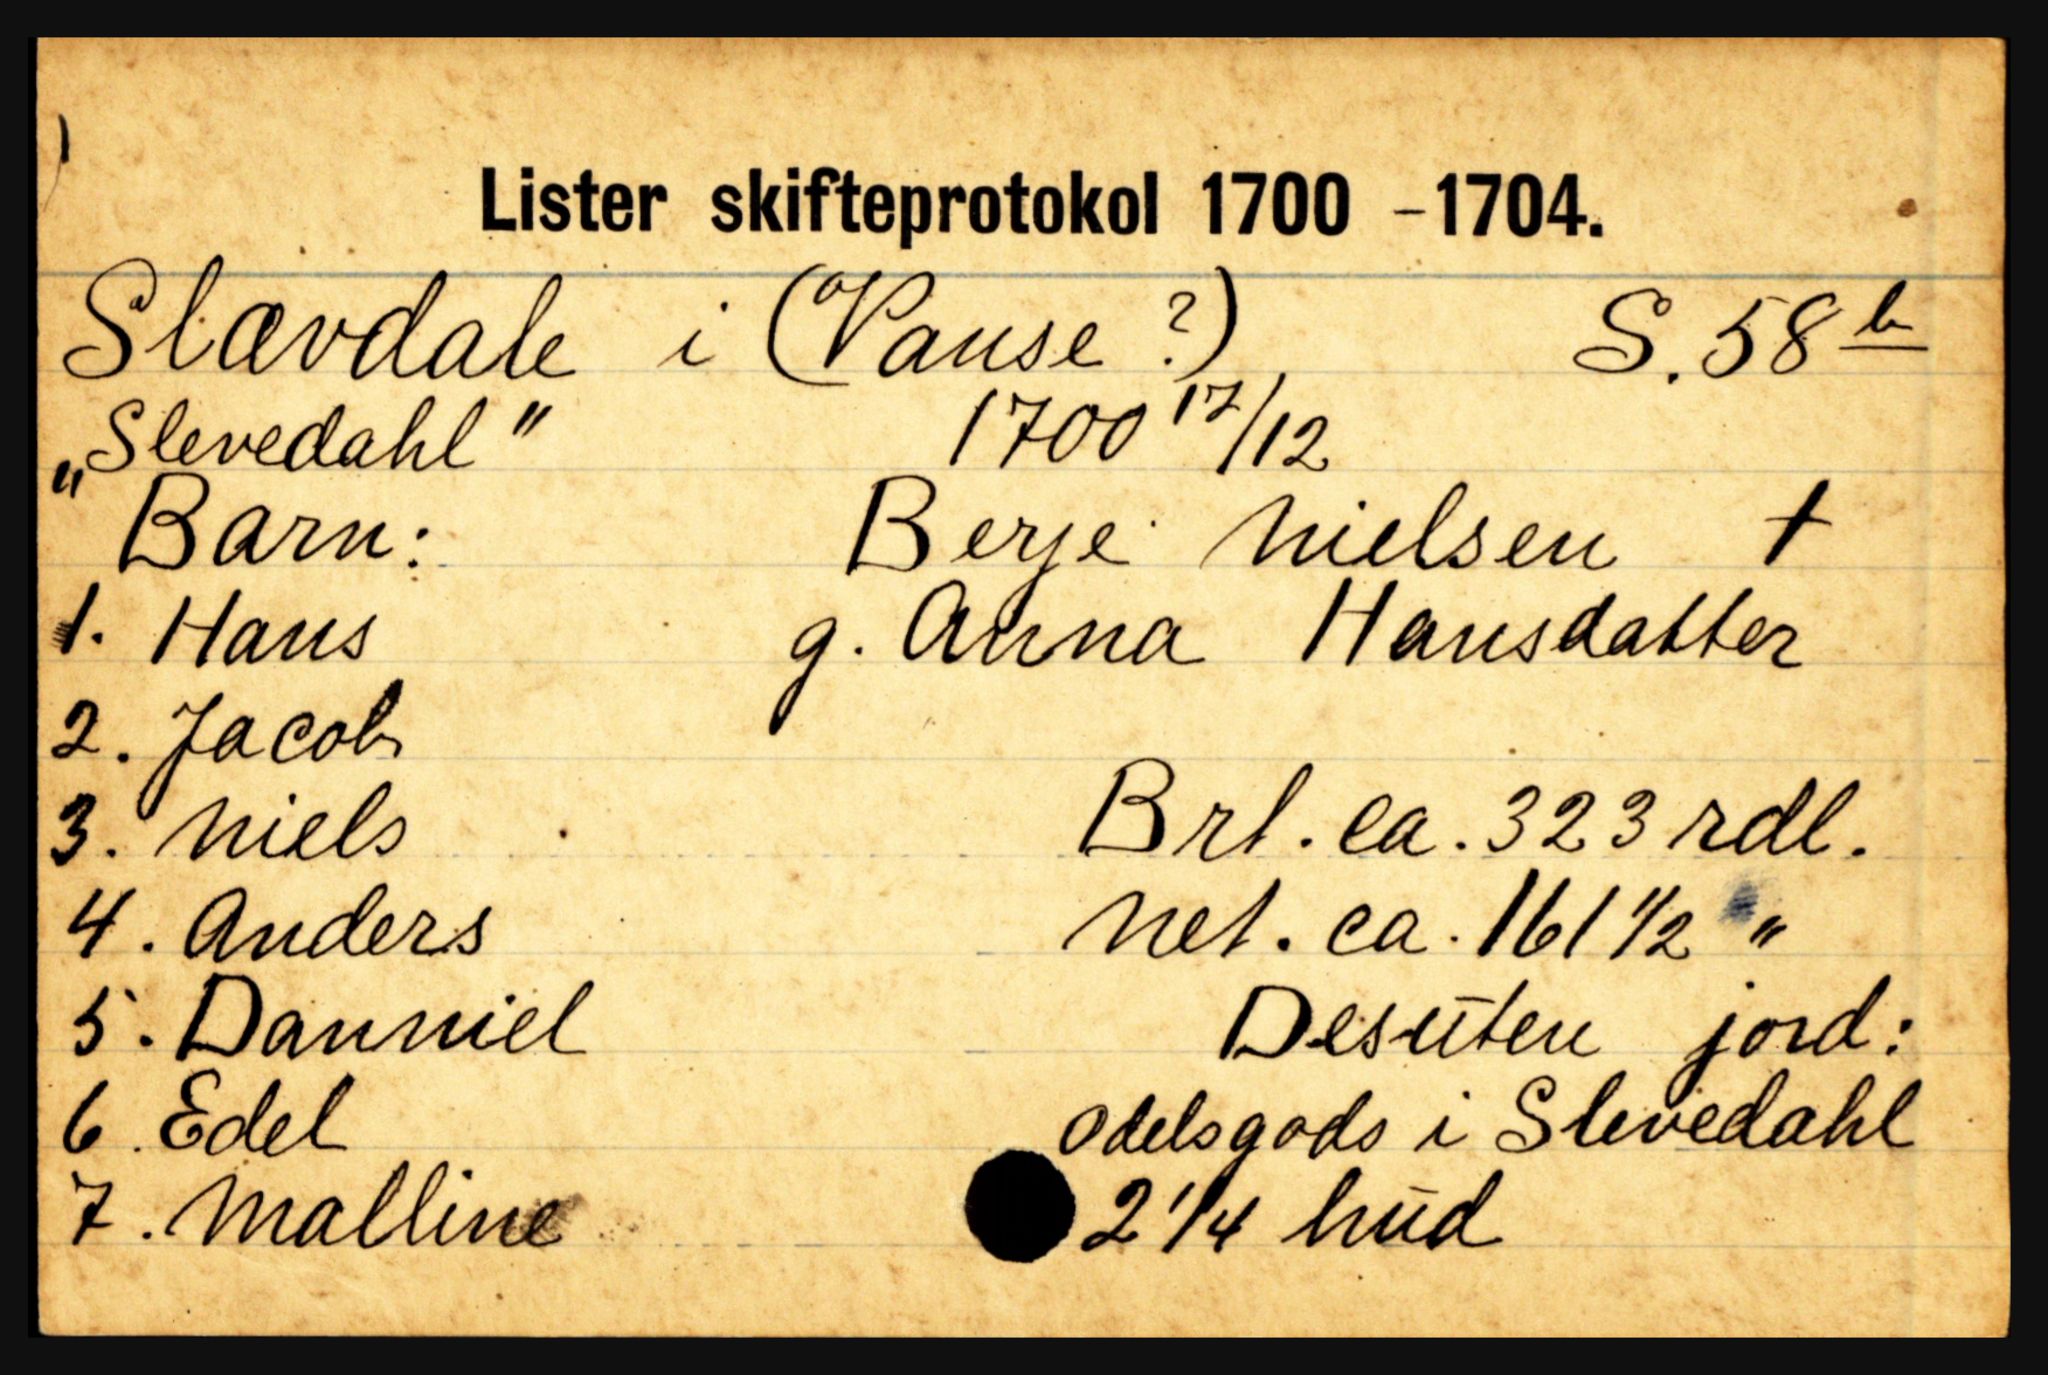 Lister skifteprotokol 1700 - 1704.
Slævdale i (Vanse ?) S. 58 b
„Slevedahl" 1700 17/12
Barn: Berje Nielsen †
1. Hans g. Anna Hansdatter
2. Jacob
3. Niels Brt. ca. 323 rdl.
4. Anders net. ca. 161 1/2 "
5. Danniel Desuten jord:
6. Edel odelsgods i Slevedahl
7. Malline 2 1/4 hud